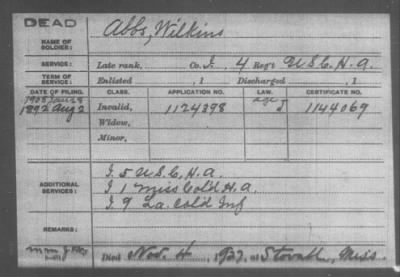 DEAD
NAME OF SOLDIER: Abbs, Wilkins
SERVICE: Late rank, Co. I, 4 Reg't U.S.C.H.A.
TERM OF SERVICE: Enlisted , 1 Discharged , 1
DATE OF FILING. CLASS. APPLICATION NO. LAW. CERTIFICATE NO.
1892 Aug 2 Invalid, 1124398 1144069
Widow,
Minor,
ADDITIONAL SERVICES: I. 5 U.S.C.H.A.
I 1 Miss Cold H.A.
I. 9 La. Cold Inf
REMARKS:
Died Nov. 4, 1927, at Stovall, Miss.